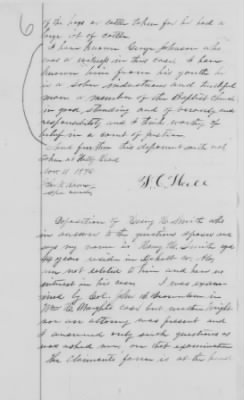 6
of the hogs or cattle taken for he had a
large lot of cattle
I have known George Johnson who
was a witness in this case I have
known him from his youth he
is a sober industrious and truthful
man a member of the Baptist Church
in good standing and of
responsibility and I think worthy of
belief in a court of justice
And further this deponent saith not
taken at Holly
Nov 11 1874
Deposition of Henry H Smith who
in answer to the questions
says my name is Henry H Smith age
44 years reside in
in not related to him and have no
interest in his case I was exam
ined by Col John
case but neither Wright
nor an attorney was present and
I answered only such questions as
was asked me, on that examination
The Claimants farm is at the head